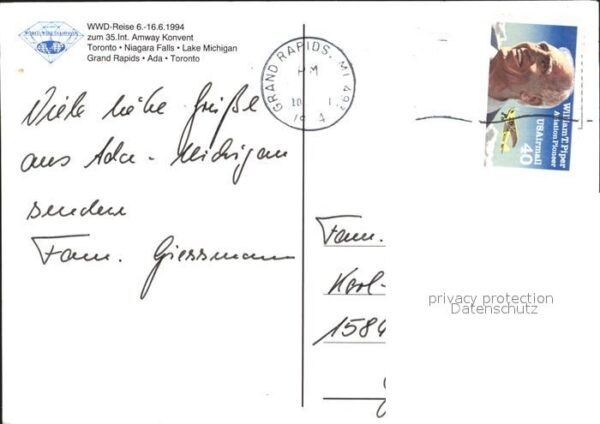 WWD-Reise 6.-16.6.1994
zum 35.Int. Amway Konvent
Toronto • Niagara Falls • Lake Michigan
Grand Rapids • Ada • Toronto
GRAND RAPIDS, MI
William T. Piper
Aviation Pioneer
USAirmail
40
Viele liebe Grüße
aus Ada - Michigan
senden
Fam. Giessmann
Fam.
Karl-
1584
privacy protection
Datenschutz